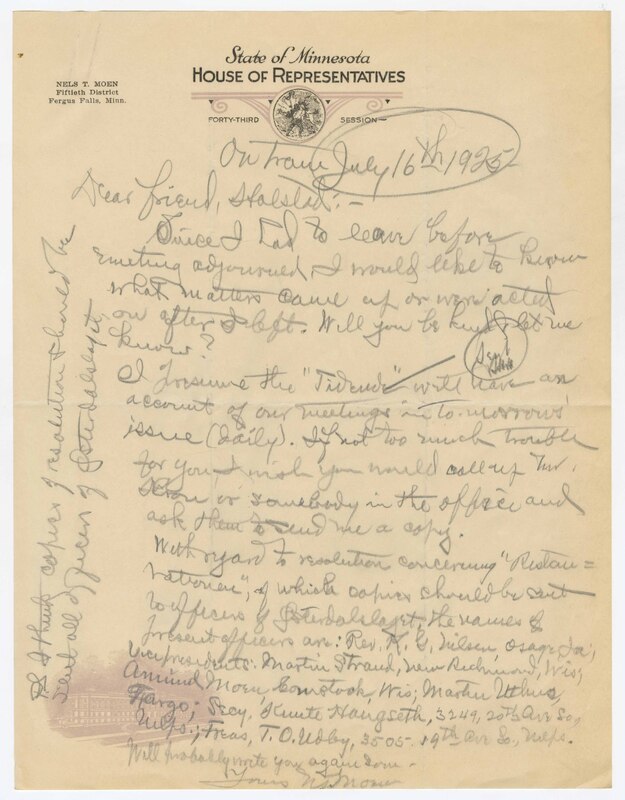 State of Minnesota
HOUSE OF REPRESENTATIVES
NELS T. MOEN
Fiftieth District
Fergus Falls, Minn.
FORTY-THIRD SESSION
On train July 16th 1925
Dear friend, Stalslad:-
Since I had to leave before
meeting adjourned, I would like to know
what matters came up or were acted
on after I left. Will you be kind & let me
know?
Sent
I presume the "Tidende" will have an
account of our meetings in to-morrows
issue (daily). If not too much trouble
for you I wish you would call up Mr.
or somebody in the office and
ask them to send me a copy.
With regard to resolution concerning "Restau=
rationen", of which copies should be sent
to officers of Østerdalslaget, the names of
present officers are: Rev. K. G. Nilsen, Osage Ia;
Vicepresidents: Martin Strand, New Richmond, Wis;
Amund Moen, Comstock, Wis; Martin
Fargo; Secy, Knute Haugseth, 3249, 20th Ave So,
Mpls.; Treas, T. O. Udby, 3505-19th Ave So, Mpls.
Will probably write you again soon-
Yours N.T. Moen
PS I think copies of resolution should be
sent all officers of Østerdalslaget,